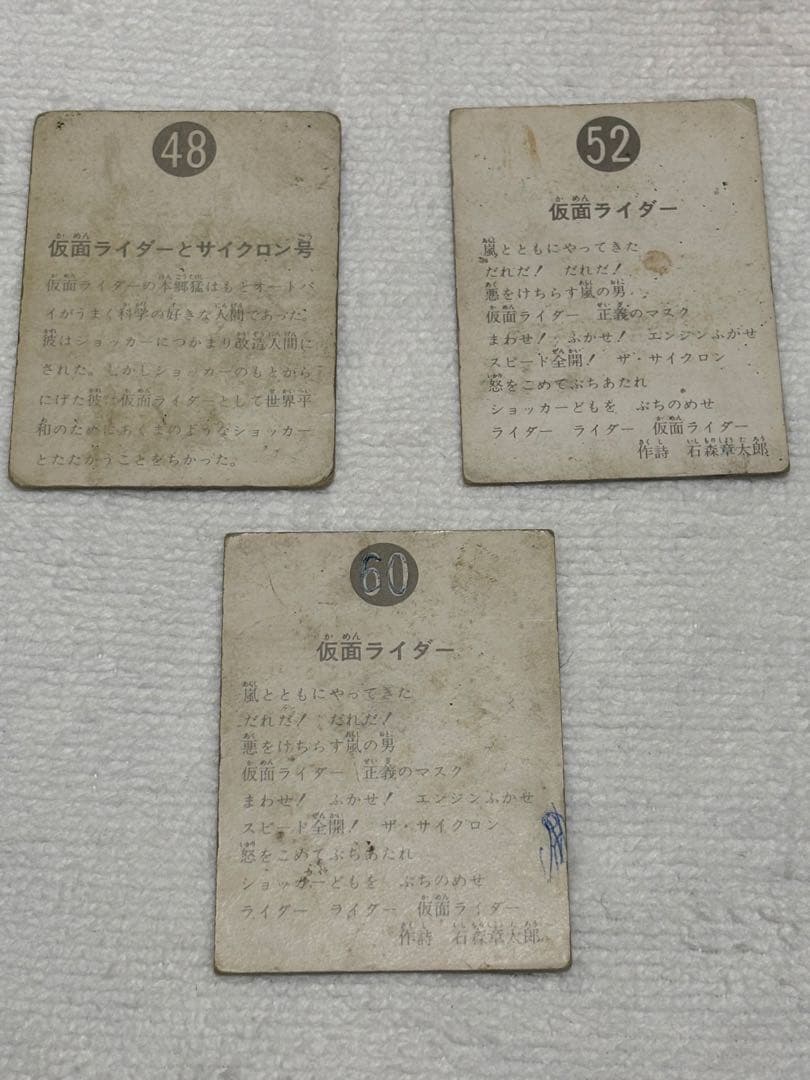 48
仮面ライダーとサイクロン号
仮面ライダーの本郷猛はもとオートバ
イがうまく科学の好きな人間であった。
彼はショッカーにつかまり改造人間に
された。しかしショッカーのもとから
にげた彼は仮面ライダーとして世界平
和のためにあくまのようなショッカー
とたたかうことをちかった。
52
仮面ライダー
嵐とともにやってきた
だれだ! だれだ!
悪をけちらす嵐の男
仮面ライダー 正義のマスク
まわせ! ふかせ! エンジンふかせ
スピード全開! ザ・サイクロン
怒をこめてぶちあたれ
ショッカーどもを ぶちのめせ
ライダー ライダー 仮面ライダー
作詩 石森章太郎
60
仮面ライダー
嵐とともにやってきた
だれだ! だれだ!
悪をけちらす嵐の男
仮面ライダー 正義のマスク
まわせ! ふかせ! エンジンふかせ
スピード全開! ザ・サイクロン
怒をこめてぶちあたれ
ショッカーどもを ぶちのめせ
ライダー ライダー 仮面ライダー
作詩 石森章太郎